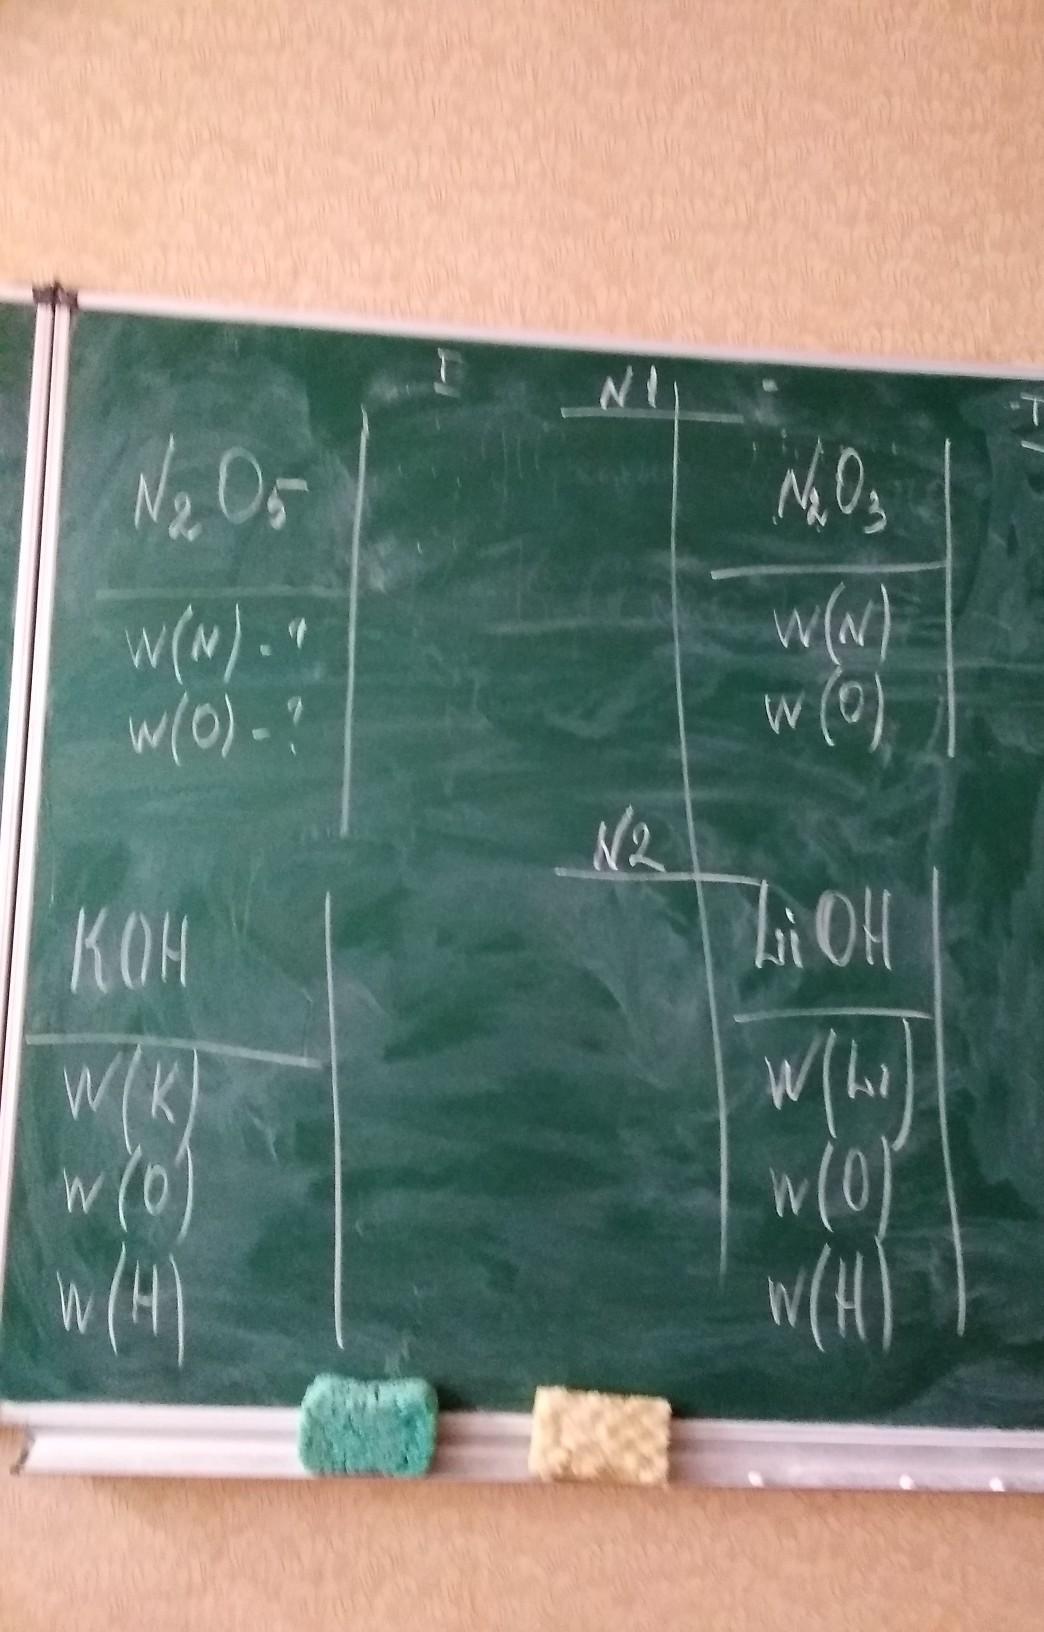 I
N1
N₂O₅
W(N) - ?
W(O) - ?
N₂O₃
W(N)
W(O)
N2
KOH
W(K)
W(O)
W(H)
LiOH
W(Li)
W(O)
W(H)